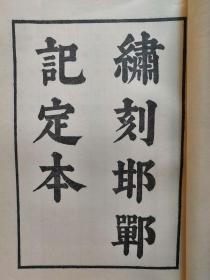 繡刻邯鄲
記定本